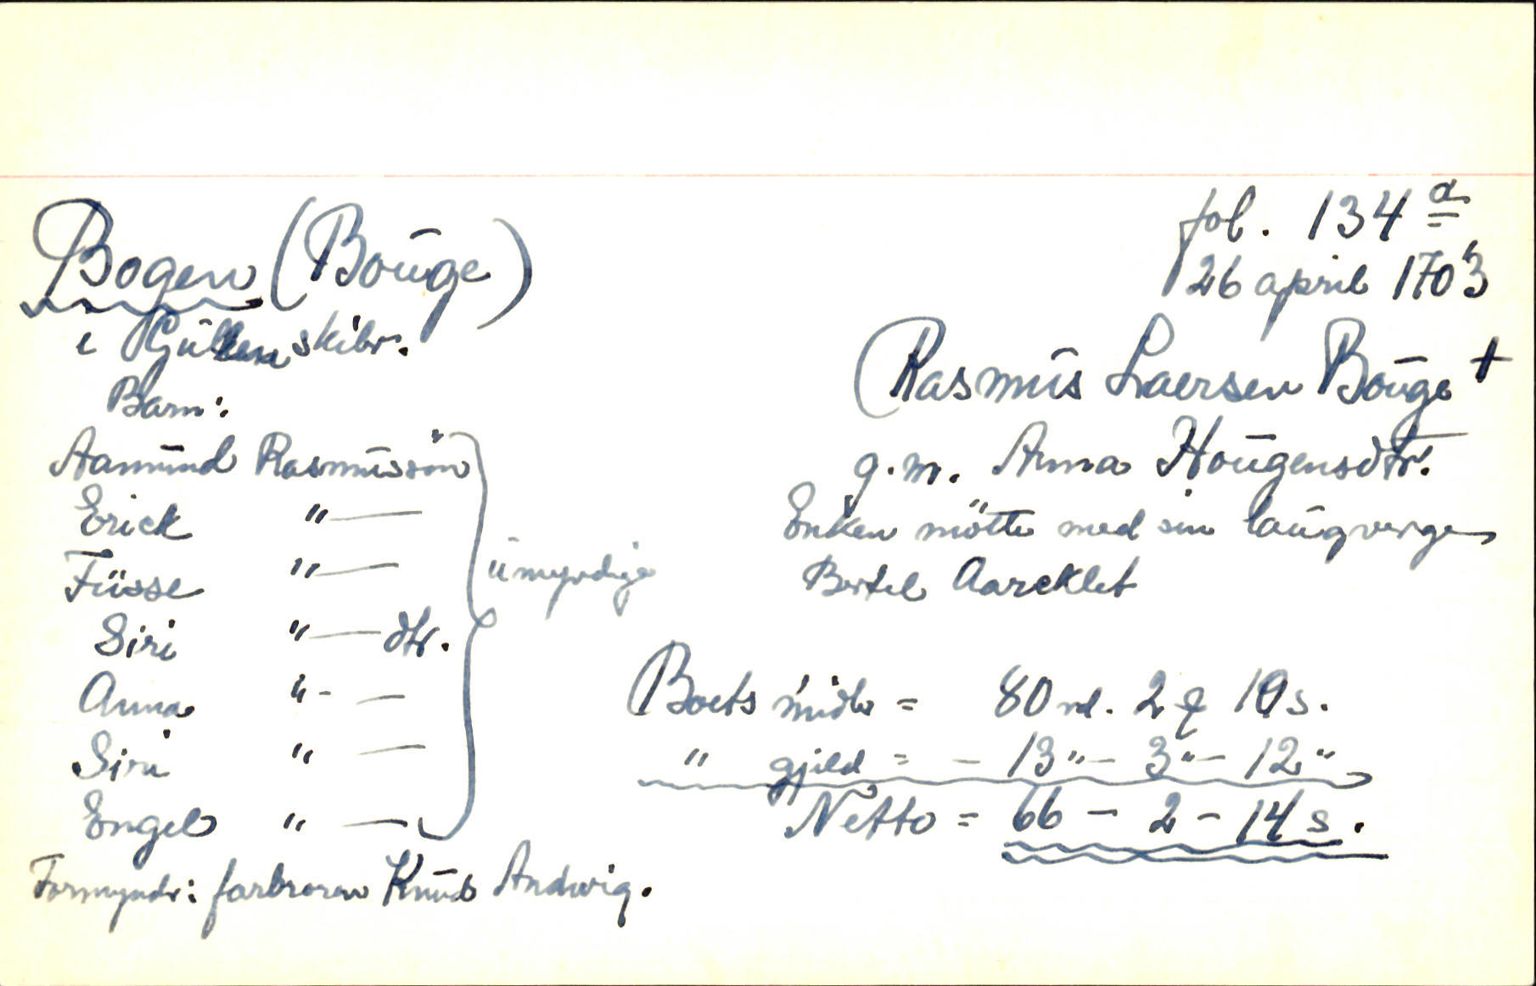 fol. 134 a
26 april 1703
Bogen (Bouge)
i skibr.
Rasmus Laersen Bouge +
g.m. Anna Hougensdtr.
Enken mötte med sin laugverge
Bertel Aarcklet
Barn:
Aamund Rasmussön
Erick " —
Fusse " —
Siri " — dtr.
Anna " - —
Siri " —
Engel " —
umyndige
Formyndr: farbroren Knud Andvig.
Boets midlr = 80 rd. 2 10 s.
" gjeld = - 13 " - 3 " - 12 "
Netto = 66 - 2 - 14 s.